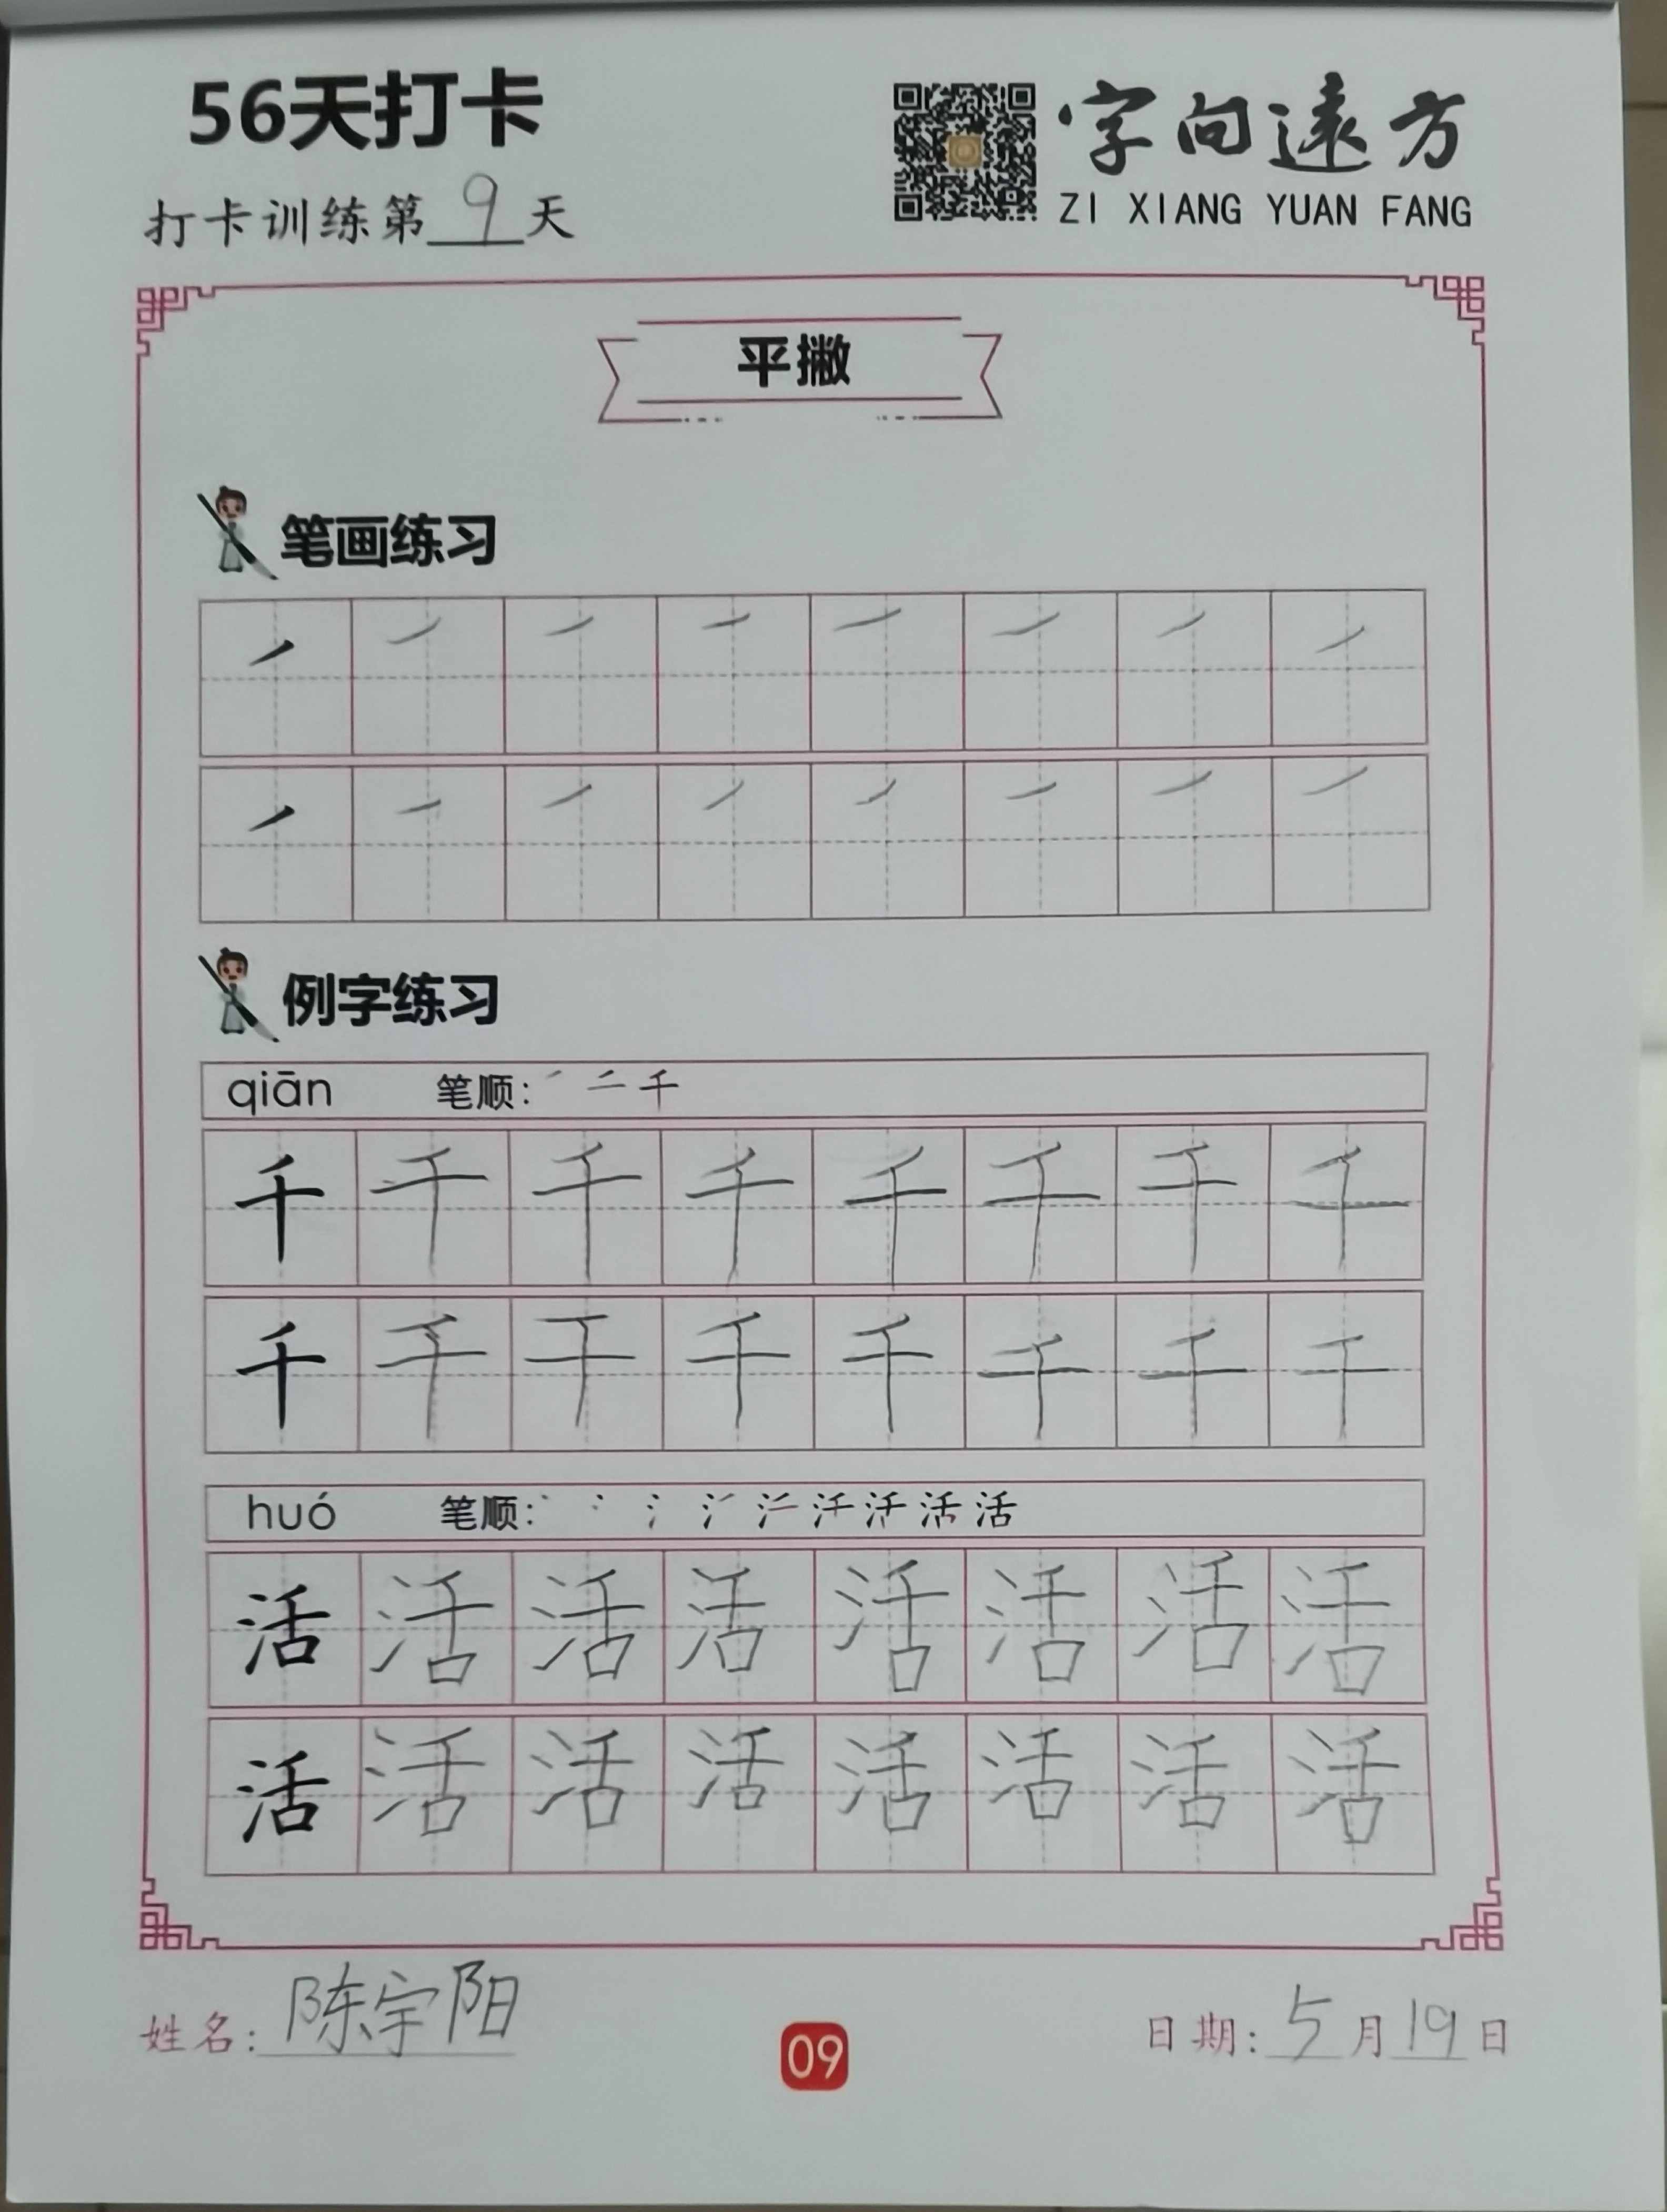 56天打卡
字向遠方
ZI XIANG YUAN FANG
打卡训练第9天
平撇
笔画练习
例字练习
qiān 笔顺：
千 千 千 千 千 千 千 千
千 千 千 千 千 千 千 千
huó 笔顺：
活 活 活 活 活 活 活 活
活 活 活 活 活 活 活 活
姓名：陈宇阳
09
日期：5月19日